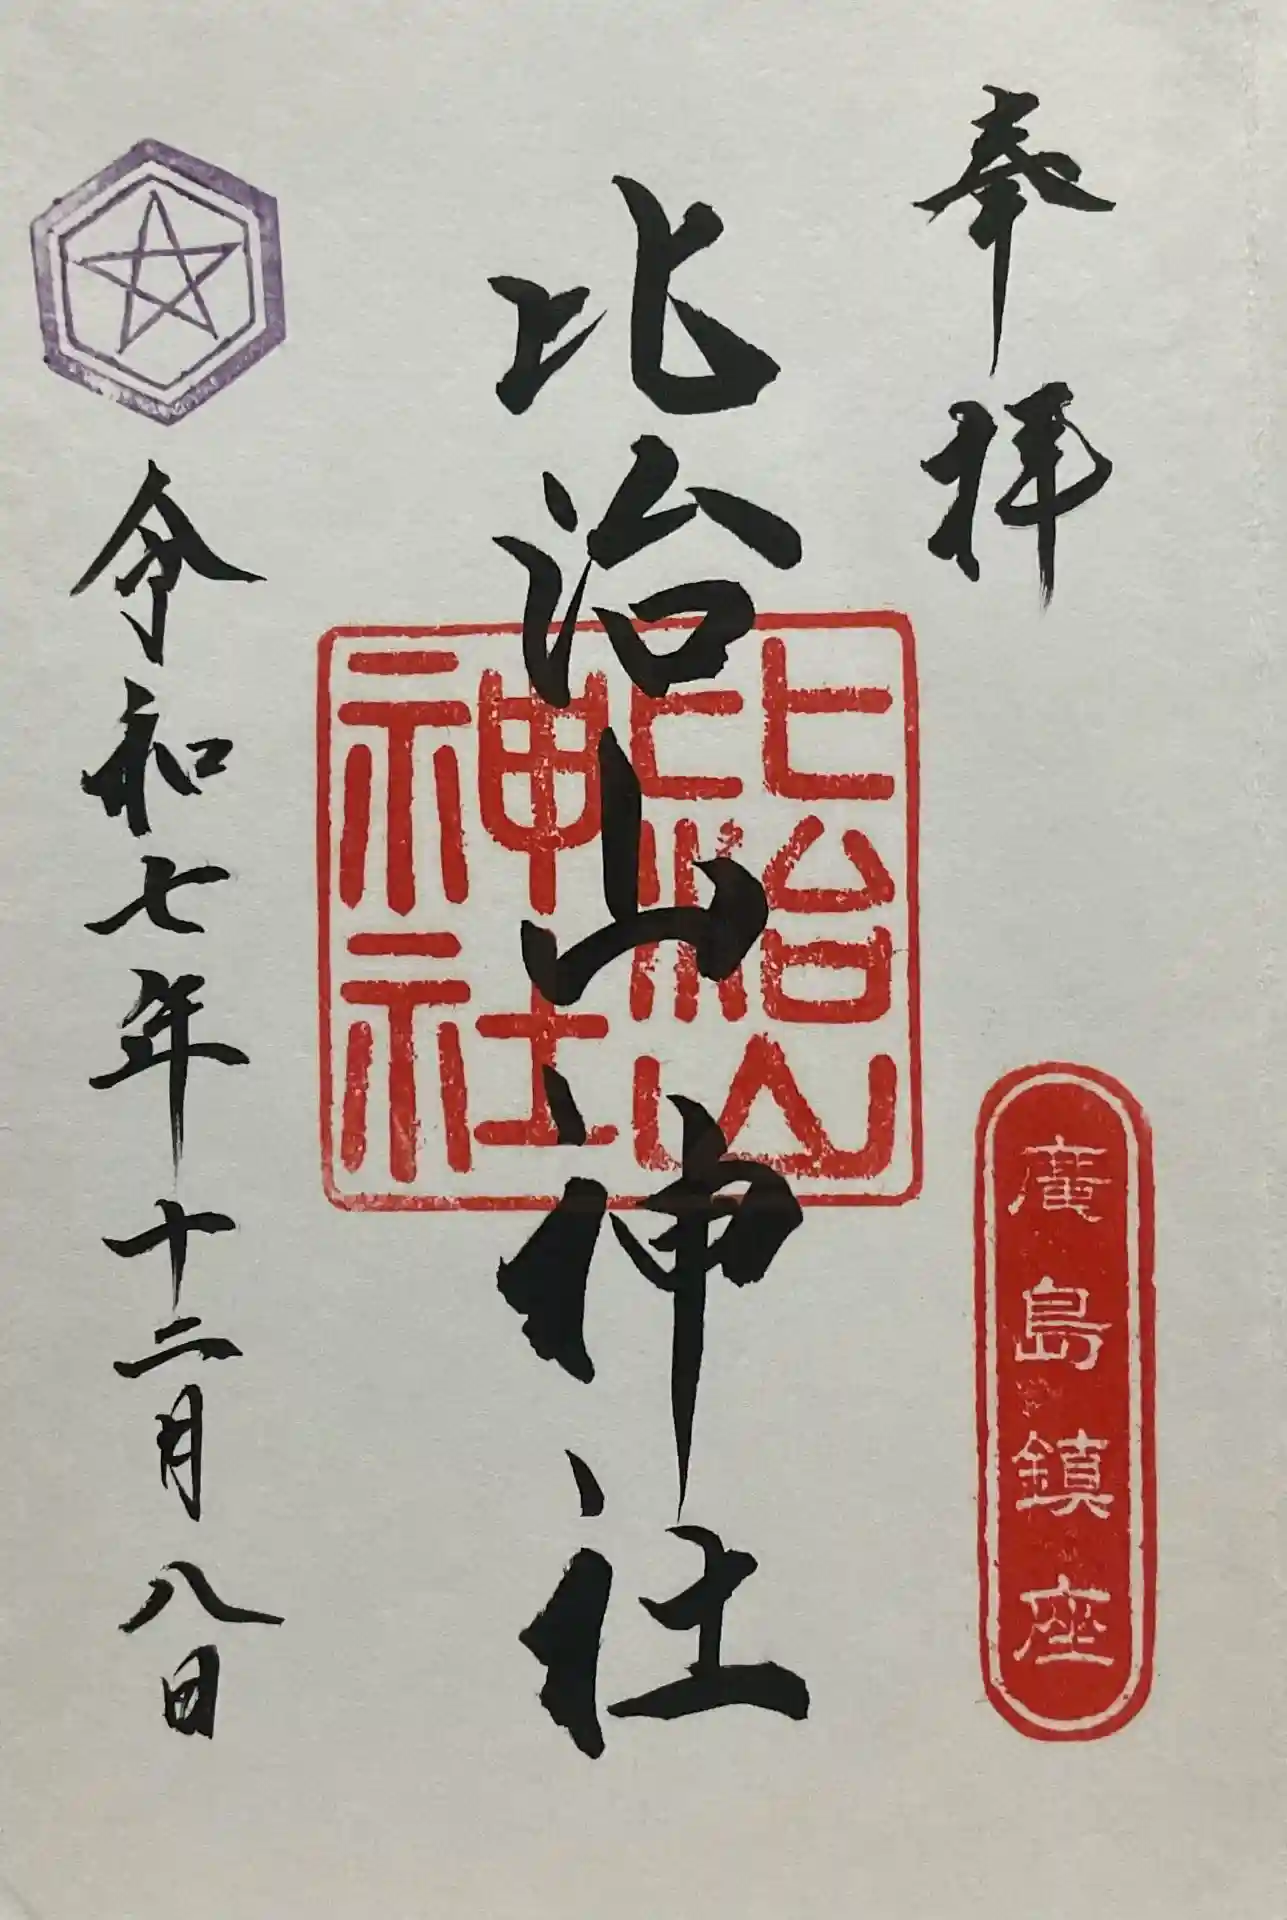 奉拝
廣島鎮座
比治山神社
比治山
神社
令和七年十二月八日